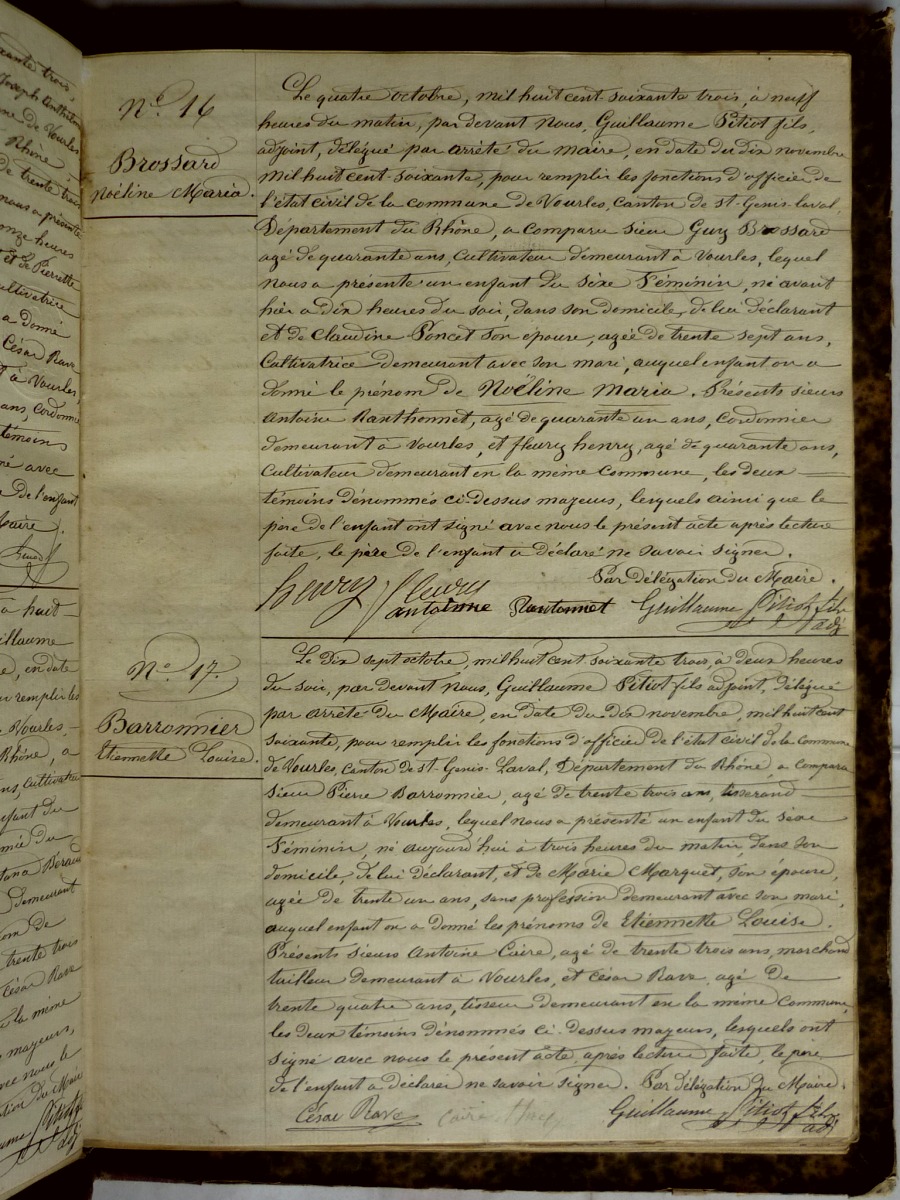 xante trois,
Joseph Anthelme
ne de Vourles
Rhône,
De trente trois
nous a présenté
onze heures
et de Pierrette
ultivatrice
a Donné
César Rave
t à Vourles,
ans, Cordonnier
témoins
né avec
de l'enfant
Maire.
à huit
illaume
e, en date
ur remplir les
Vourles,
Rhône, a
ns, Cultivateur
nfant du
mié du
demeurant
om de
trente trois
César Rave
la même
mazeurs,
vec nous le
tion du Maire
ume Pitiot
adj
N.o 16
Brossard
Noëline Maria.
Le quatre octobre, mil huit cent soixante trois, à neuff
heures du matin, par devant Nous, Guillaume Pitiot fils,
adjoint, délégué par arrêté du maire, en date du dix novembre
mil huit cent soixante, pour remplir les fonctions d'officier de
l'état civil de la commune de Vourles, Canton de St-Genis-Laval,
Département du Rhône, a comparu sieur Guy Brossard
agé de quarante ans, Cultivateur demeurant à Vourles, lequel
nous a présenté un enfant du sèxe Féminin, né avant
hier a dix heures du soir, dans son domicile, de lui déclarant
et de Claudine Poncet son épouse, agée de trente sept ans,
Cultivatrice demeurant avec son mari, auquel enfant on a
donné le prénom de Noéline Maria. Présents sieurs
Antoine Ranthonnet, agé de quarante un ans, Cordonnier
demeurant à Vourles, et fleury henry, agé de quarante ans,
Cultivateur demeurant en la même Commune, les deux
témoins dénommés ci-dessus mazeurs, lesquels ainsi que le
pere de l'enfant ont signé avec nous le présent acte après lecture
faite, le père de l'enfant a déclaré ne savoir signer.
Par délégation du Maire.
henry fleury antoinne Rantonnet Guillaume Pitiot fils
adj
N.o 17.
Barronnier
Etiennette Louise.
Le Dix sept octobre, mil huit cent soixante trois, à deux heures
du soir, par devant nous, Guillaume Pitiot fils adjoint, délégué
par arrêté du Maire, en date du dix novembre, mil huit cent
soixante, pour remplir les fonctions d'officier de l'état civil de la commune
de Vourles, Canton de St-Genis-Laval, Département du Rhône, a comparu
sieur Pierre Barronnier, agé de trente trois ans, tisserand
demeurant à Vourles, lequel nous a présenté un enfant du sèxe
Féminin, né aujourd'hui à trois heures du matin, dans son
domicile, de lui déclarant, et de Marie Marquet, son épouse,
agée de trente un ans, sans profession demeurant avec son mari,
auquel enfant on a donné les prénoms de Etiennette Louise.
Présents sieurs Antoine Caire, agé de trente trois ans, marchand
tailleur demeurant à Vourles, et César Rave, agé De
trente quatre ans, tisseur demeurant en la même Commune,
les deux témoins dénommés ci-dessus mazeurs, lesquels ont
signé avec nous le présent acte, après lecture faite, le père
de l'enfant a déclarer ne savoir signer. Par délégation du Maire.
César Rave Caire Guillaume Pitiot fils
adj